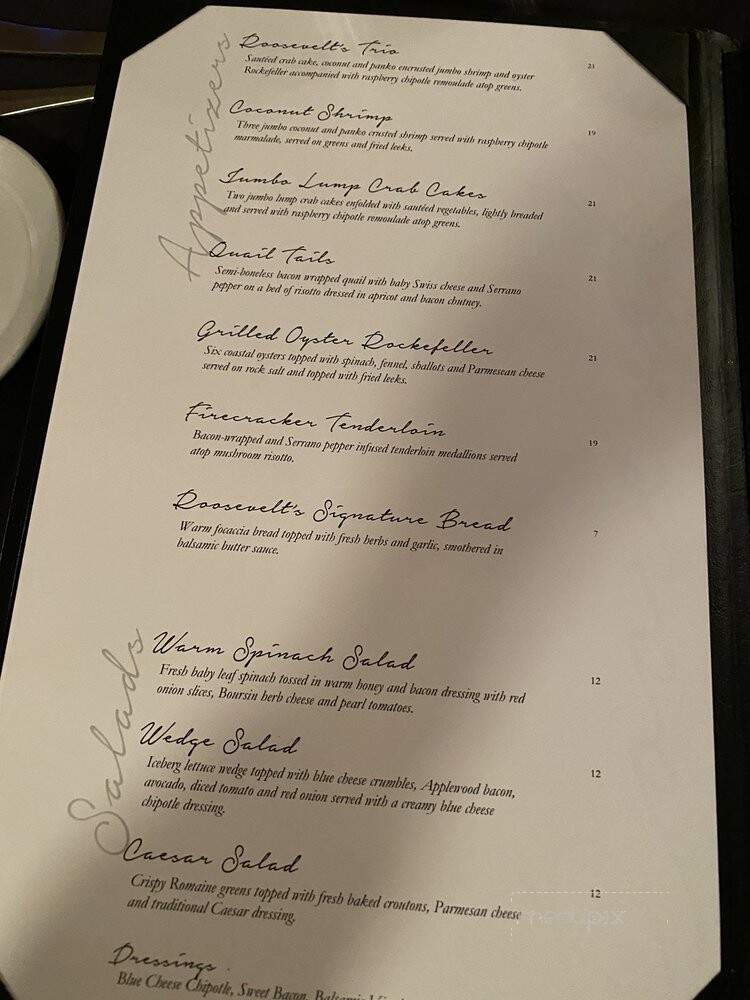 Appetizers
Roosevelt's Trio
Sautéed crab cake, coconut and panko encrusted jumbo shrimp and oyster 21
Rockefeller accompanied with raspberry chipotle remoulade atop greens.
Coconut Shrimp
Three jumbo coconut and panko crusted shrimp served with raspberry chipotle 19
marmalade, served on greens and fried leeks.
Jumbo Lump Crab Cakes
Two jumbo lump crab cakes enfolded with sautéed vegetables, lightly breaded 21
and served with raspberry chipotle remoulade atop greens.
Quail Tails
Semi-boneless bacon wrapped quail with baby Swiss cheese and Serrano 21
pepper on a bed of risotto dressed in apricot and bacon chutney.
Grilled Oyster Rockefeller
Six coastal oysters topped with spinach, fennel, shallots and Parmesean cheese 21
served on rock salt and topped with fried leeks.
Firecracker Tenderloin
Bacon-wrapped and Serrano pepper infused tenderloin medallions served 19
atop mushroom risotto.
Roosevelt's Signature Bread
Warm focaccia bread topped with fresh herbs and garlic, smothered in 7
balsamic butter sauce.
Salads
Warm Spinach Salad
Fresh baby leaf spinach tossed in warm honey and bacon dressing with red 12
onion slices, Boursin herb cheese and pearl tomatoes.
Wedge Salad
Iceberg lettuce wedge topped with blue cheese crumbles, Applewood bacon, 12
avocado, diced tomato and red onion served with a creamy blue cheese
chipotle dressing.
Caesar Salad
Crispy Romaine greens topped with fresh baked croutons, Parmesan cheese 12
and traditional Caesar dressing.
menupix
Dressings
Blue Cheese Chipotle, Sweet Bacon, Balsamic